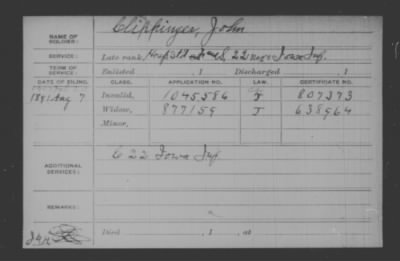 NAME OF SOLDIER: Clippinger, John
SERVICE: Late rank, Hosp Std 22 Iowa Inf.
TERM OF SERVICE: Enlisted , 1 Discharged , 1
DATE OF FILING. CLASS. APPLICATION NO. LAW. CERTIFICATE NO.
1891 Aug 7 Invalid, 1045586 J 807373
Widow, 877159 J 638964
Minor,
ADDITIONAL SERVICES: C 22 Iowa Inf
REMARKS:
Died , 1 , at